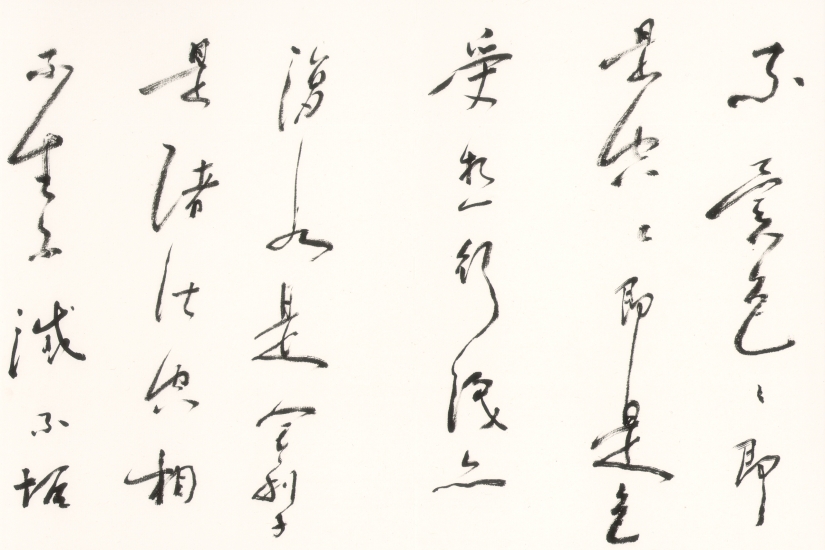 不異色色〻即
是空〻即是色
受想行識亦
復如是舍利子
是諸法空相
不生不滅不垢